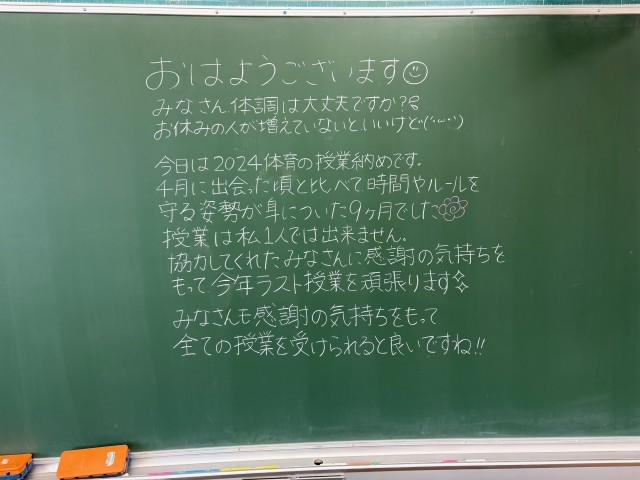 おはようございます☺
みなさん、体調は大丈夫ですか？
お休みの人が増えていないといいけど(･･)
今日は2024体育の授業納めです。
4月に出会った頃と比べて時間やルールを
守る姿勢が身についた9ヶ月でした
授業は私1人では出来ません。
協力してくれたみなさんに感謝の気持ちを
もって今年ラスト授業を頑張ります✧
みなさんも感謝の気持ちをもって
全ての授業を受けられると良いですね!!